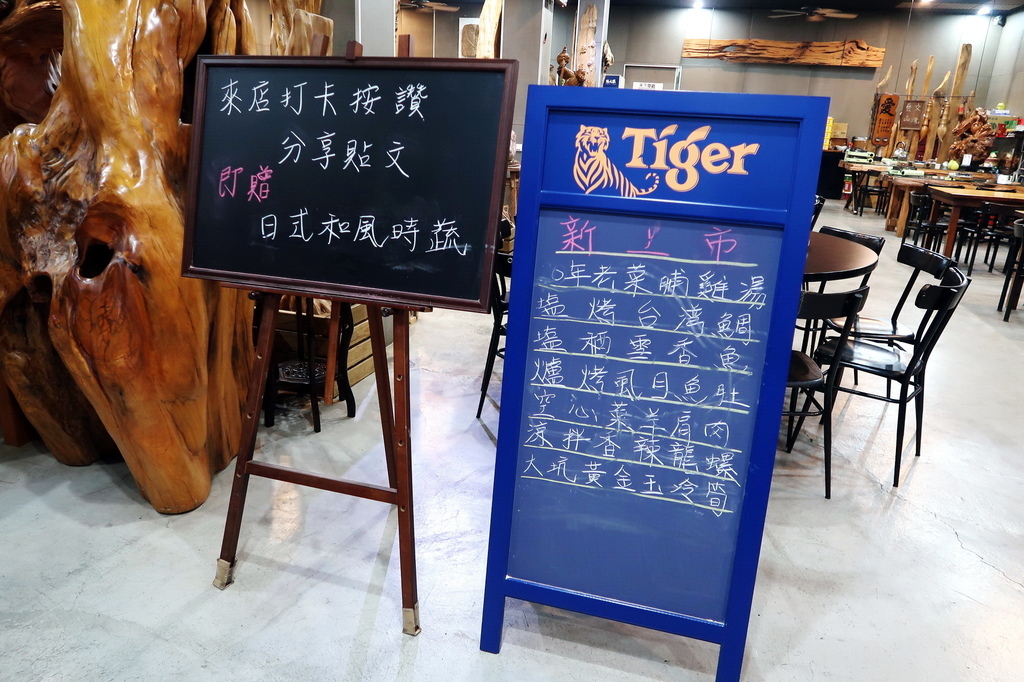 來店打卡按讚
分享貼文
即贈
日式和風時蔬
Tiger
新上市
年老菜脯雞湯
塩烤台湾鯛
塩酒雲香魚
爐烤風目魚肚
空心菜羊肩肉
涼拌香辣龍螺
大坑黃金玉冷筒
愛